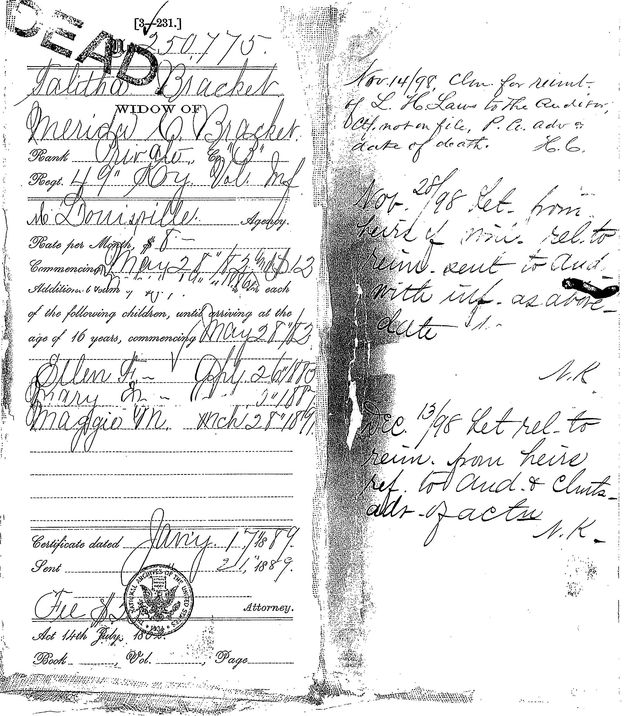 DEAD
[3-231.]
No. 250,775.
Talitha Bracket
WIDOW OF
Merida C. Bracket
Rank Private, Co "B"
Regt. 49" Ky Vol. Inf
Louisville Agency.
Rate per Month, $ 8-
Commencing May 28" 83 $12
Additional each
of the following children, until arriving at the
age of 16 years, commencing May 28" 83
Ellen F- 1880
Mary
Maggie M. Mch 28" 1891
Certificate dated Jan'y. 17" 1889.
Sent 21, 1889.
Fee $ Attorney.
THE NATIONAL ARCHIVES OF THE UNITED STATES
1934
Act 14th July,
Book , Vol. , Page
Nov. 14/98 Clm for reimt-
of L. H. Laws to the Auditor,
Ctf. not on file, P. A. adv
date of death. H.C.
Nov. 28/98 Let. from
heirs rel. to
reim. sent to Aud.
with inf. as above-
date
N.K.
Dec. 13/98 Let rel- to
reim. from heirs
ref. to Aud. & Clmts-
adv- of actn
N.K-